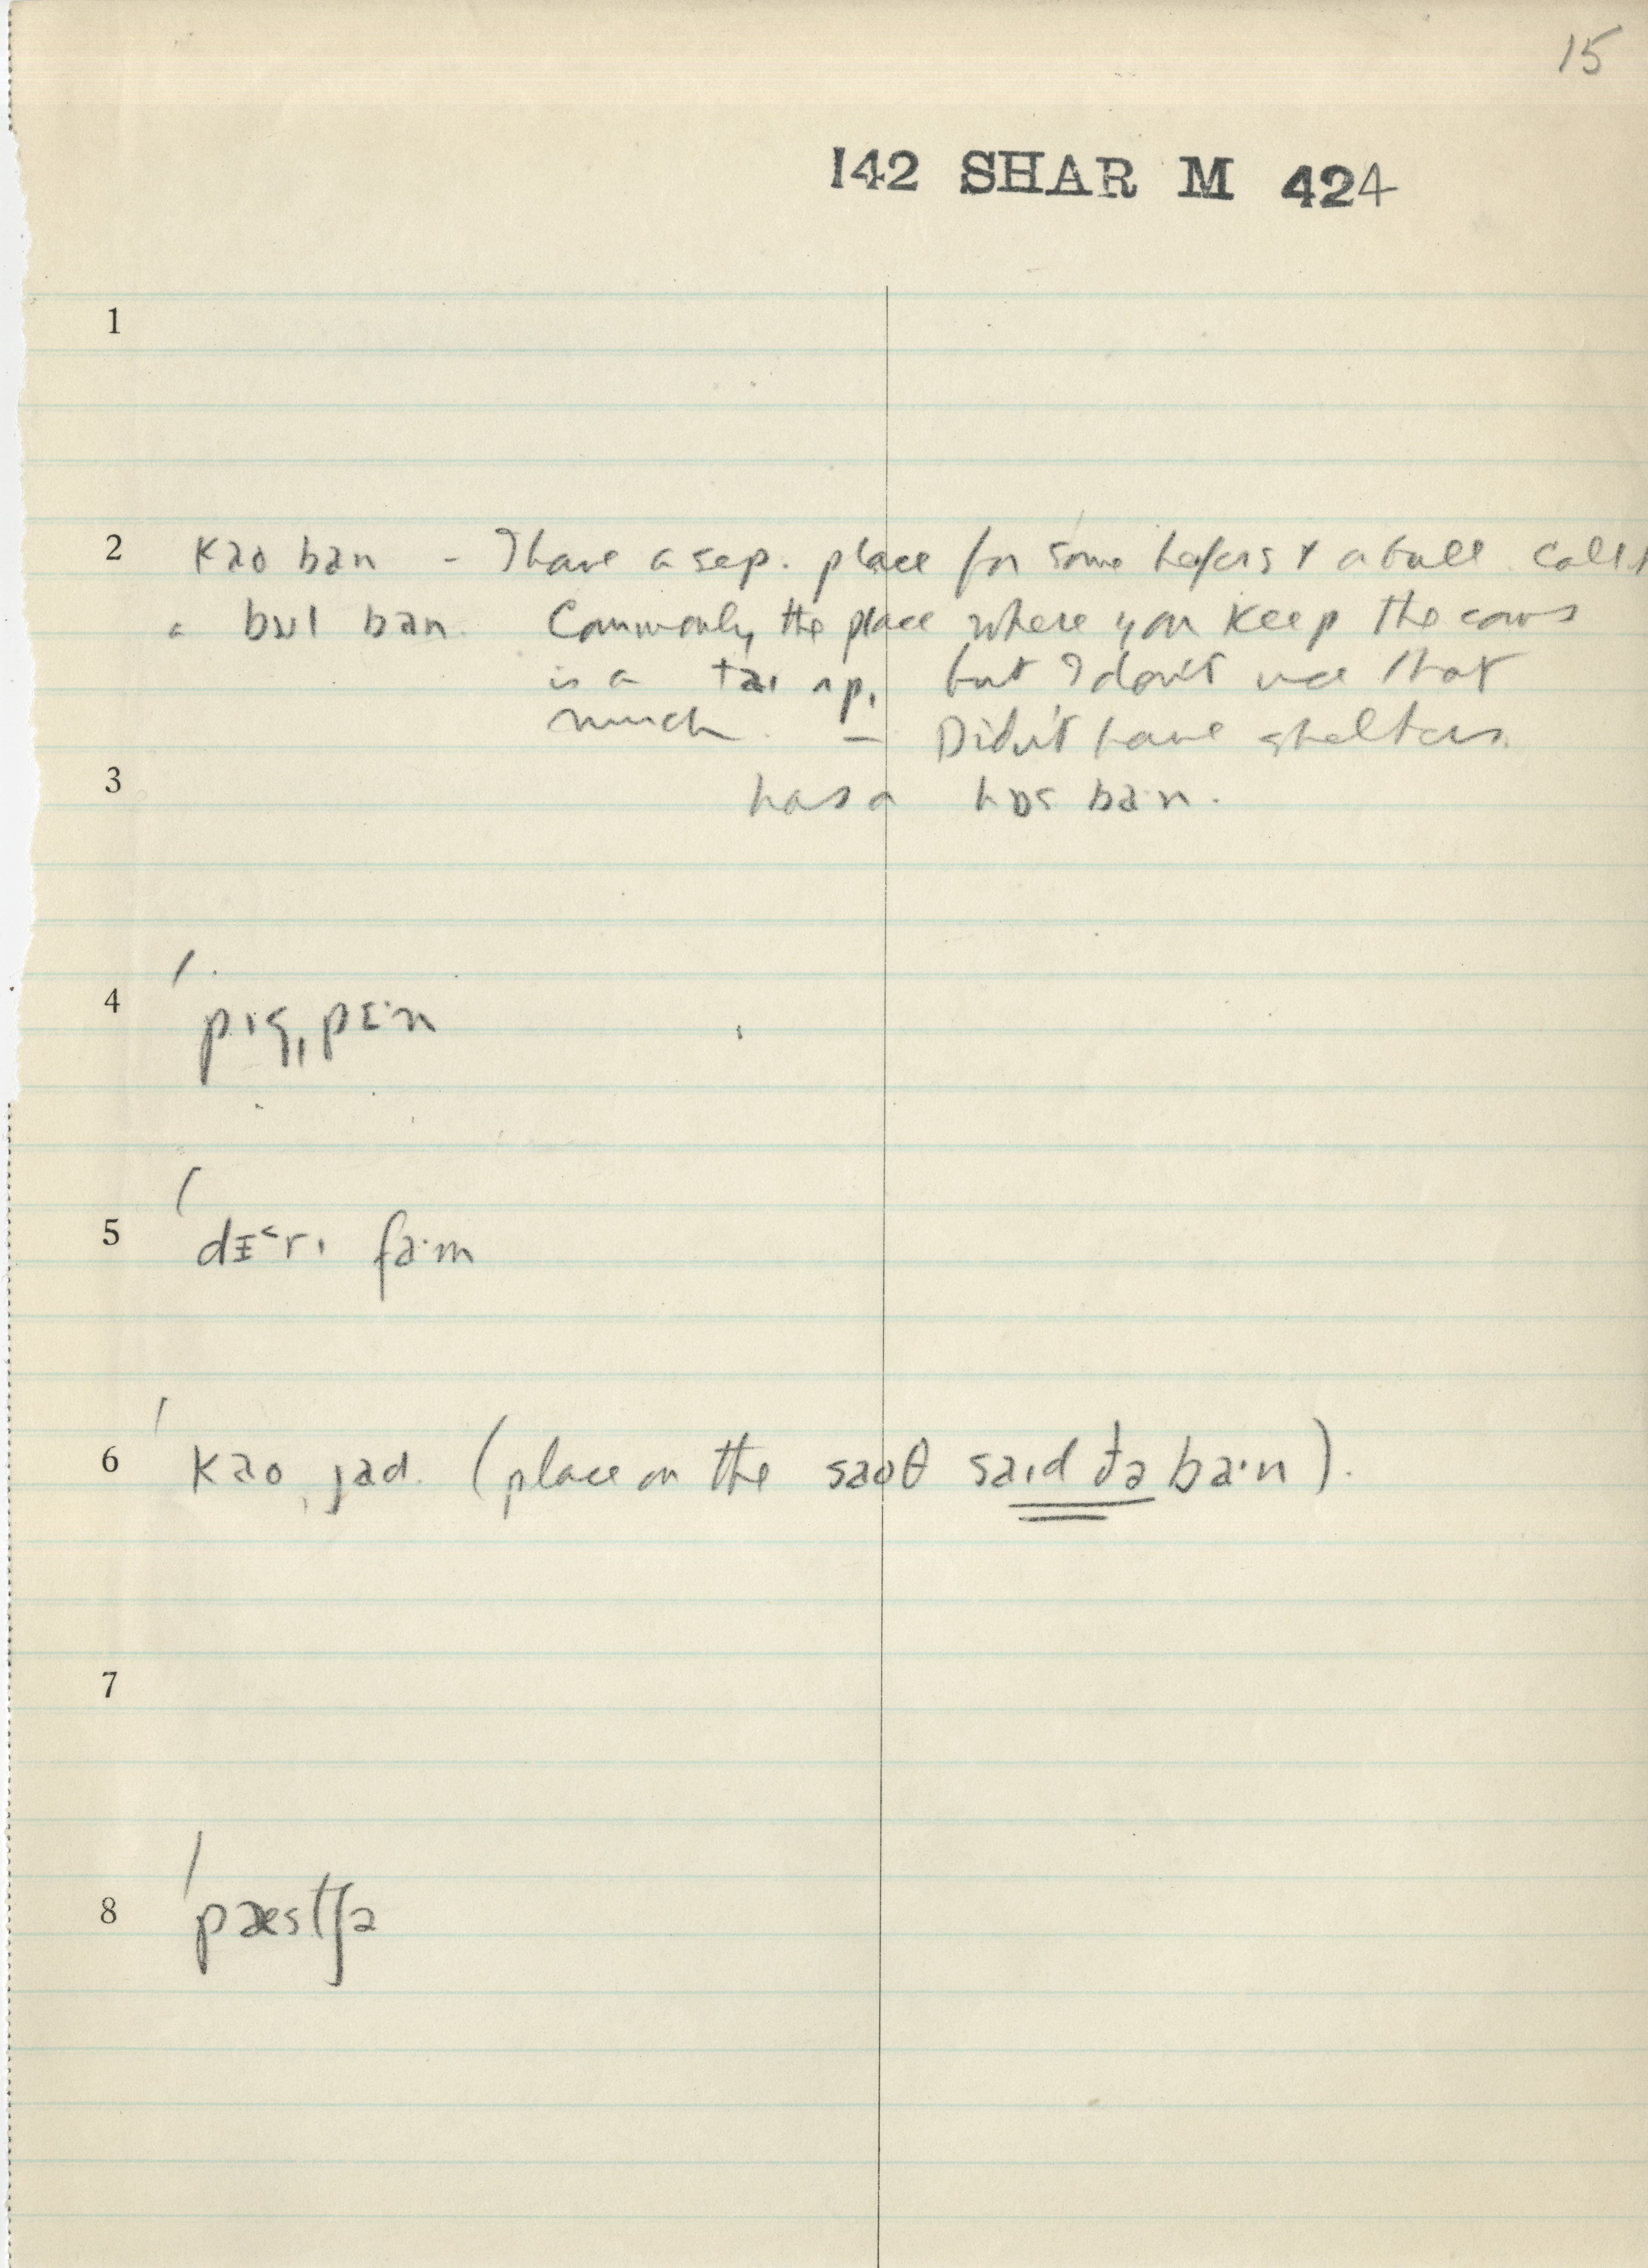 15
142 SHAR M 424
1
2 kao ban - I have a sep. place for some heifers & a bull. Call it
a bʊl ban. Commonly the place where you keep the cows
is a taɪ ʌp, but I don't use that
much. — Didn't have shelters.
3 has a hɒs ba·n.
4 pɪg ˌpɛ·n
5 dɛ˂rɪ fa·m
6 kao ˌjad. (place on the saoθ saɪd ðə ba·n).
7
8 pæstʃə